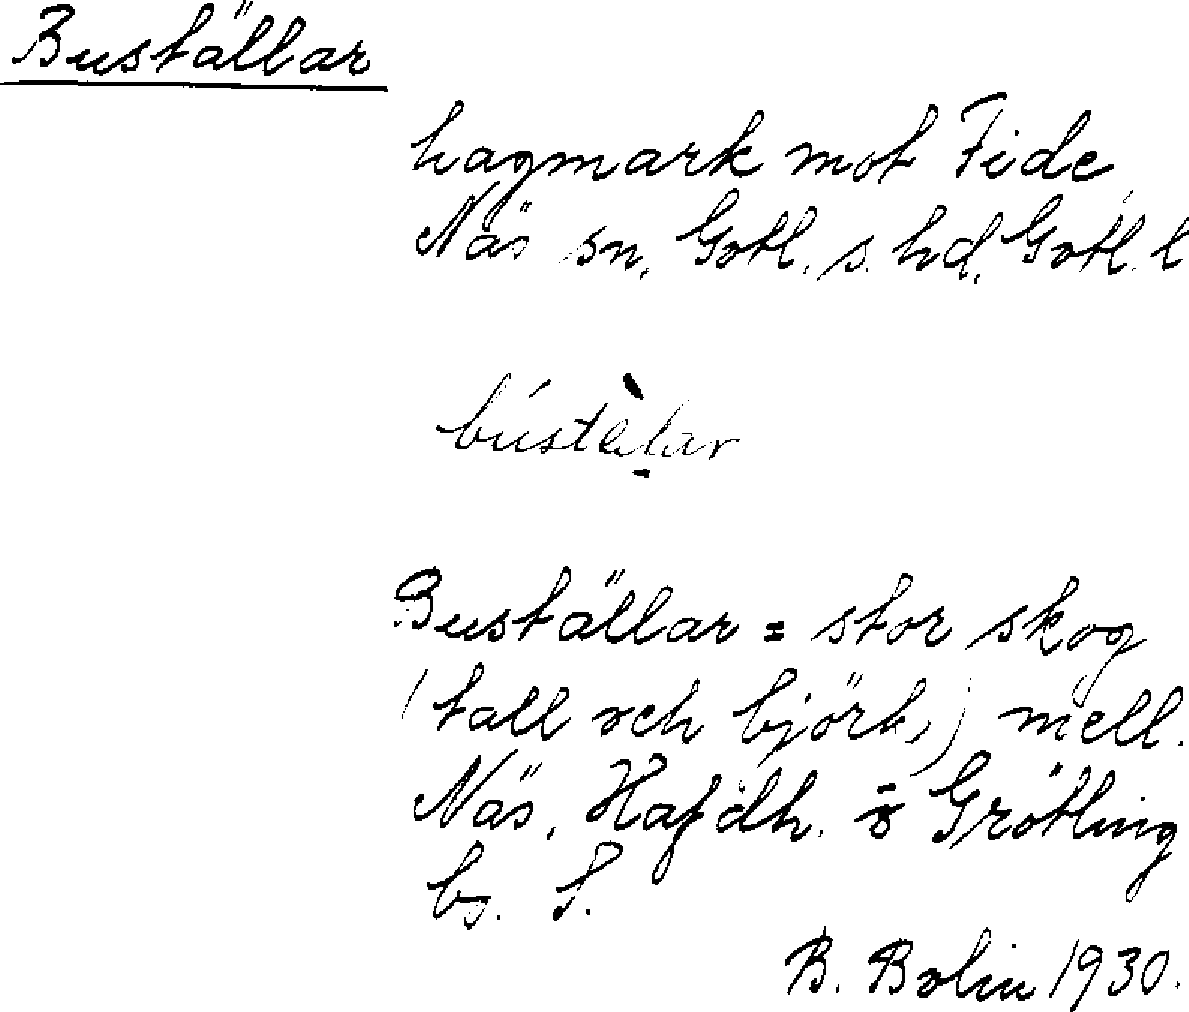 Buställar
hagmark mot Fide,
Näs sn, Gotl. s. hd, Gotl. l
Buställar = stor skog
(tall och björk,) mell.
Näs, Hafdh. o Grötling
bs. S.
B. Bolin 1930.